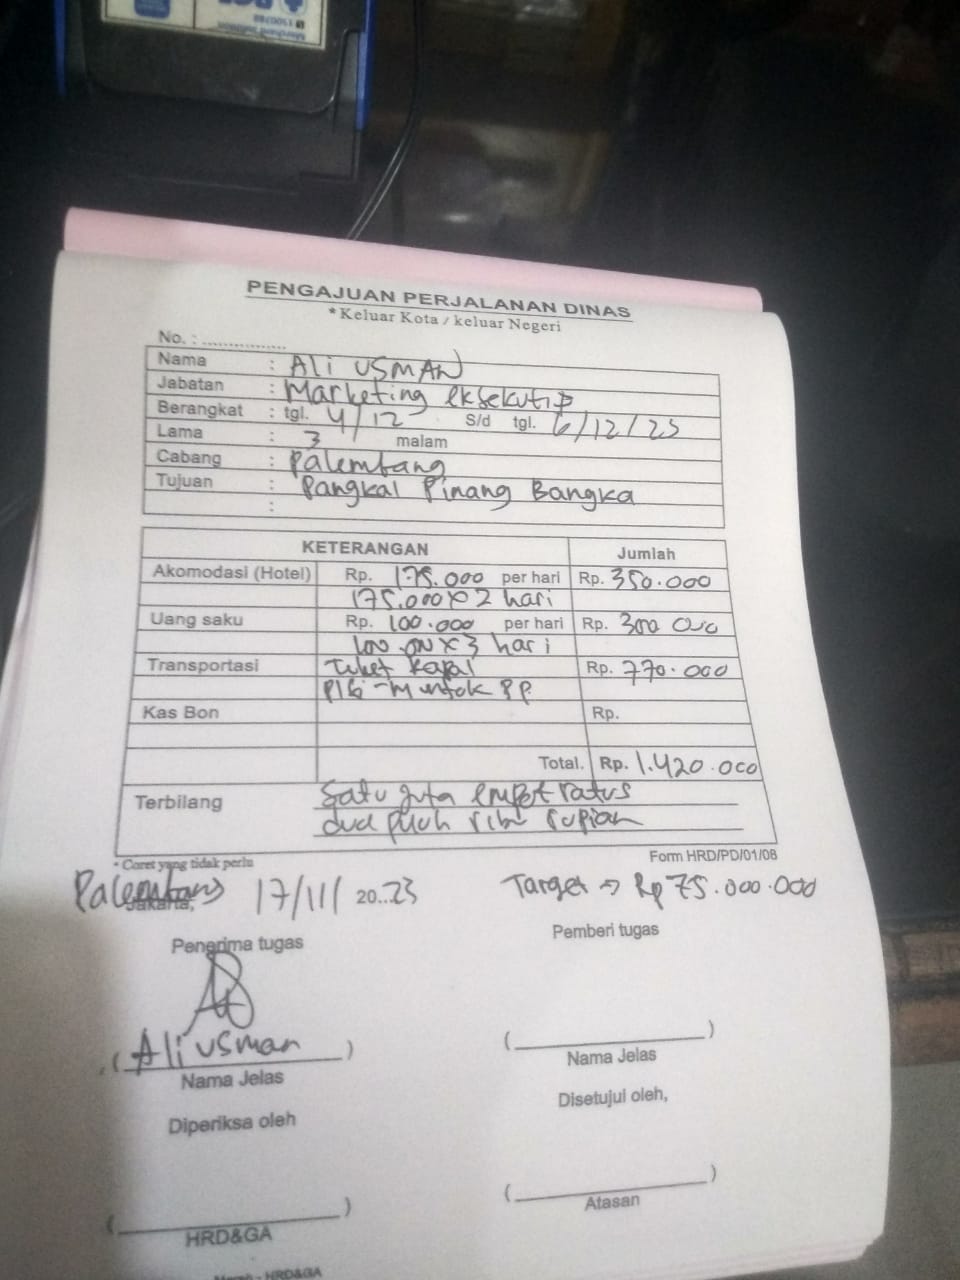 1500788
PENGAJUAN PERJALANAN DINAS
*Keluar Kota / keluar Negeri
No. : ................
Nama : Ali USMAN
Jabatan : Marketing eksekutif
Berangkat : tgl. 4/12 S/d tgl. 6/12/23
Lama : 3 malam
Cabang : Palembang
Tujuan : Pangkal Pinang Bangka
:
KETERANGAN Jumlah
Akomodasi (Hotel) Rp. 175.000 per hari Rp. 350.000
175.000 x 2 hari
Uang saku Rp. 100.000 per hari Rp. 300 000
100.000 x 3 hari
Transportasi tiket kapal Rp. 770.000
Plg - Muntok PP
Kas Bon Rp.
Total. Rp. 1.420.000
Terbilang Satu juta empat ratus
dua puluh ribu rupiah
* Coret yang tidak perlu Form HRD/PD/01/08
Palembang Jakarta, 17/11/ 20..23 Target → Rp 75.000.000
Penerima tugas Pemberi tugas
(Ali usman) ( )
Nama Jelas Nama Jelas
Diperiksa oleh Disetujui oleh,
( ) ( )
HRD&GA Atasan
Merah - HRD&GA